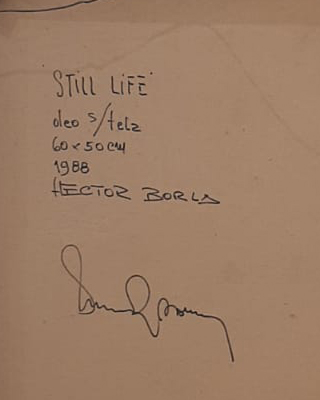 'STILL LIFE'
oleo s/tela
60 x 50 cm
1988
HECTOR BORLA